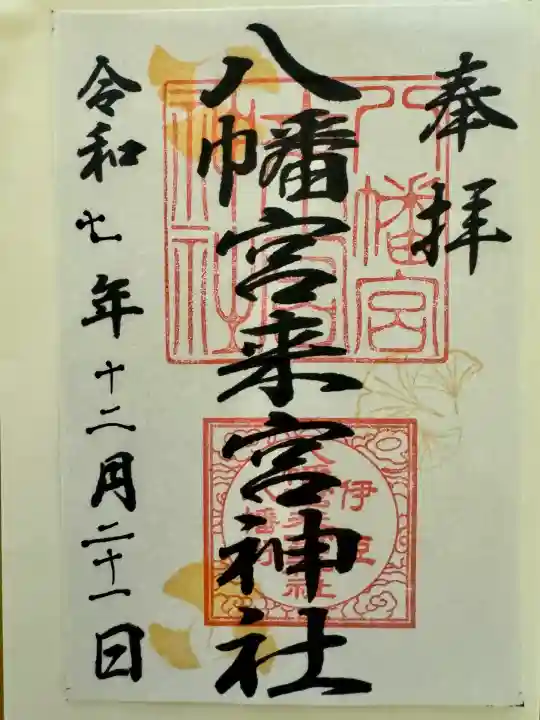 奉拝
八幡宮来宮神社
令和七年十二月二十一日
八幡宮
伊豆